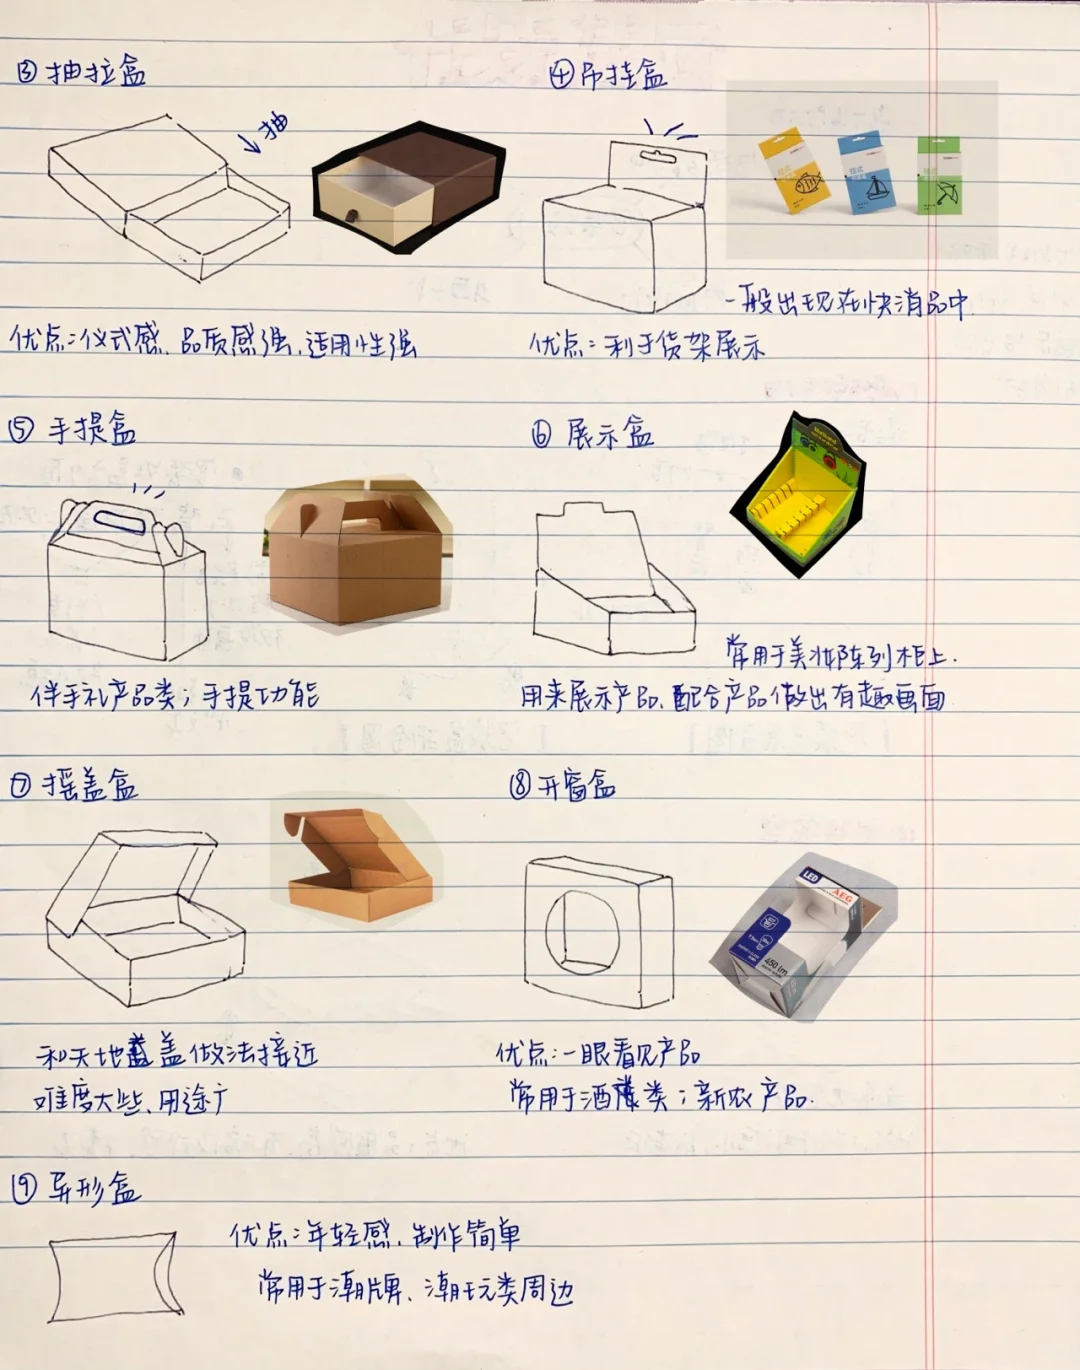 ③ 抽拉盒
↓抽
优点:仪式感、品质感强、适用性强
④ 吊挂盒
一般出现在快消品中
优点:利于货架展示
⑤ 手提盒
伴手礼产品类;手提功能
⑥ 展示盒
常用于美妆陈列柜上.
用来展示产品、配合产品做出有趣画面
⑦ 摇盖盒
和天地盖盖做法接近
难度大些、用途广
⑧ 开窗盒
LED
AEG
450 lm
优点:一眼看见产品
常用于酒类;新农产品.
⑨ 异形盒
优点:年轻感、制作简单
常用于潮牌、潮玩类周边